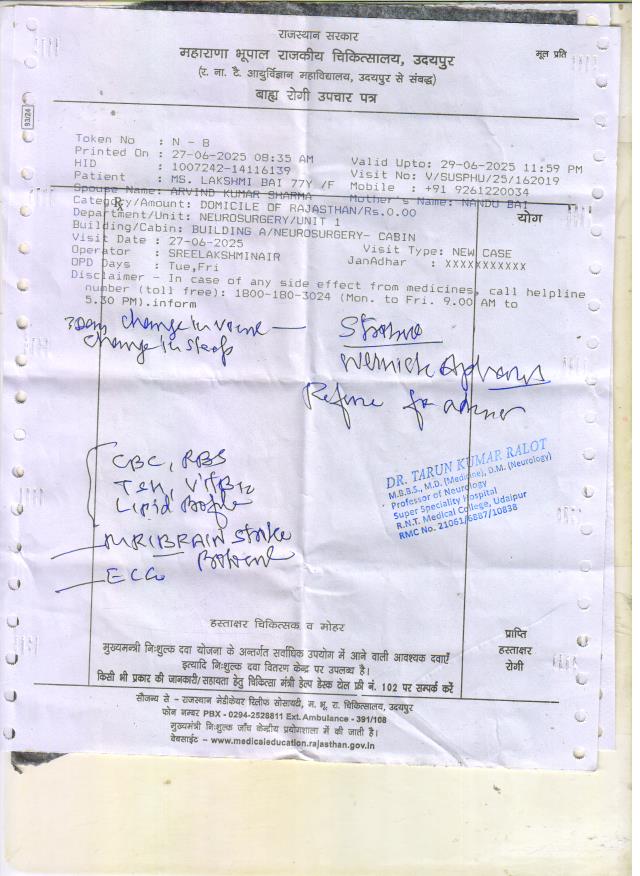 राजस्थान सरकार
महाराणा भूपाल राजकीय चिकित्सालय, उदयपुर
मूल प्रति
(र. ना. टै. आयुर्विज्ञान महाविद्यालय, उदयपुर से संबद्ध)
बाह्य रोगी उपचार पत्र
93/24
Token No : N - 8
Printed On : 27-06-2025 08:35 AM Valid Upto: 29-06-2025 11:59 PM
HID : 1007242-14116139 Visit No: V/SUSPHU/25/162019
Patient : MS. LAKSHMI BAI 77Y /F Mobile : +91 9261220034
Spouse Name: ARVIND KUMAR SHARMA Mother's Name: NANDU BAI
Category/Amount: DOMICILE OF RAJASTHAN/Rs.0.00
योग
Department/Unit: NEUROSURGERY/UNIT 1
Building/Cabin: BUILDING A/NEUROSURGERY- CABIN
Visit Date : 27-06-2025 Visit Type: NEW CASE
Operator : SREELAKSHMINAIR JanAdhar : XXXXXXXXXXX
OPD Days : Tue,Fri
Disclaimer - In case of any side effect from medicines, call helpline
number (toll free): 1800-180-3024 (Mon. to Fri. 9.00 AM to
5.30 PM).inform
3Day change in
change in
Wernick
Refuse for
CBC, RBS
TSH, Vit B12
Lipid Profile
MRI BRAIN Stroke
Protocol
ECG
DR. TARUN KUMAR RALOT
M.B.B.S., M.D. (Medicine), D.M. (Neurology)
Professor of Neurology
Super Speciality Hospital
R.N.T. Medical College, Udaipur
RMC No. 21061/6887/10838
हस्ताक्षर चिकित्सक व मोहर
प्राप्ति
हस्ताक्षर
रोगी
मुख्यमन्त्री निःशुल्क दवा योजना के अन्तर्गत सर्वाधिक उपयोग में आने वाली आवश्यक दवाएँ
इत्यादि निःशुल्क दवा वितरण केन्द्र पर उपलब्ध है।
किसी भी प्रकार की जानकारी/सहायता हेतु चिकित्सा मंत्री हेल्प डेस्क टोल फ्री नं. 102 पर सम्पर्क करें
सौजन्य से - राजस्थान मेडीकेयर रिलीफ सोसायटी, म. भू. रा. चिकित्सालय, उदयपुर
फोन नम्बर PBX - 0294-2528811 Ext. Ambulance - 391/108
मुख्यमन्त्री निःशुल्क जाँच केन्द्रीय प्रयोगशाला में की जाती है।
वेबसाईट – www.medicaleducation.rajasthan.gov.in